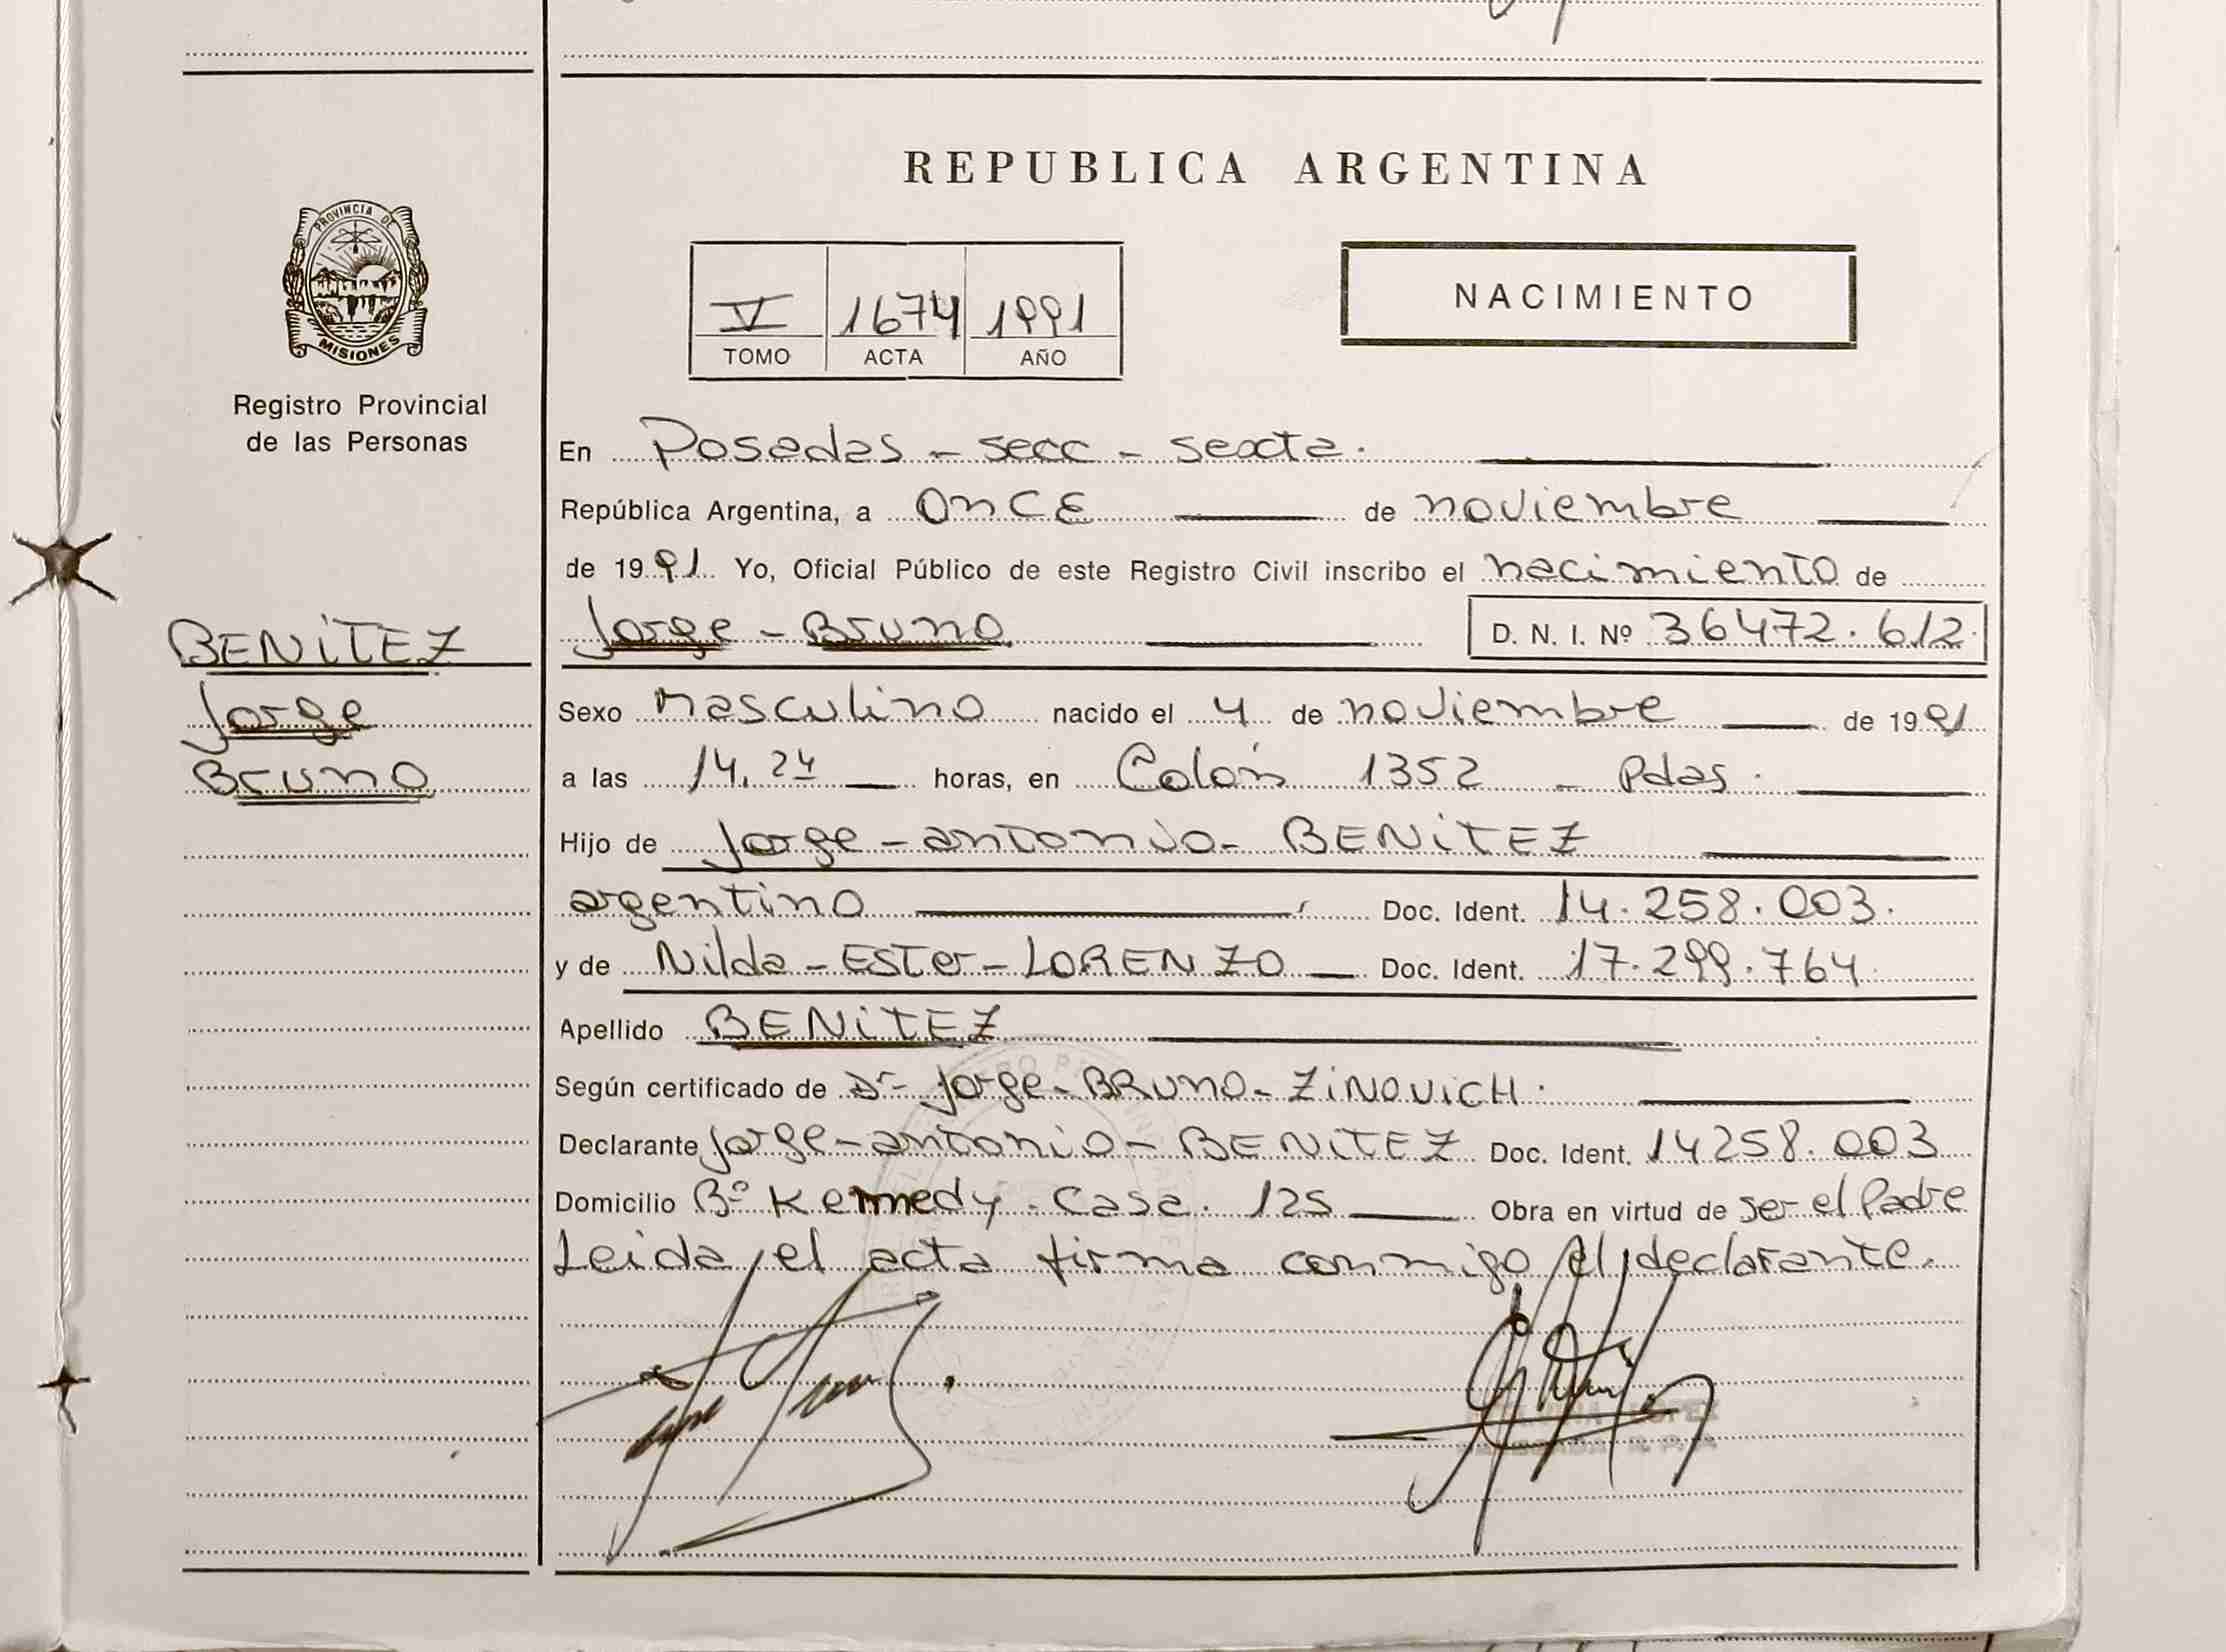 PROVINCIA DE
MISIONES
Registro Provincial
de las Personas
BENITEZ
Jorge
Bruno
REPUBLICA ARGENTINA
V 1674 1991
TOMO ACTA AÑO
NACIMIENTO
En Posadas - secc - sexta.
República Argentina, a ONCE de noviembre
de 1991 Yo, Oficial Público de este Registro Civil inscribo el nacimiento de
Jorge - Bruno D. N. I. Nº 36472.612.
Sexo Masculino nacido el 4 de noviembre de 1991
a las 14.24 horas, en Colón 1352 - Pdas.
Hijo de Jorge - antonio - BENITEZ
argentino Doc. Ident. 14.258.003.
y de Nilda - Ester - LORENZO Doc. Ident. 17.299.764.
Apellido BENITEZ
Según certificado de Dr Jorge - BRUNO - ZINOVICH.
Declarante Jorge - antonio - BENITEZ Doc. Ident. 14258.003
Domicilio Bº Kennedy. Casa. 125 Obra en virtud de ser el Padre
Leida, el acta firma conmigo el declarante.